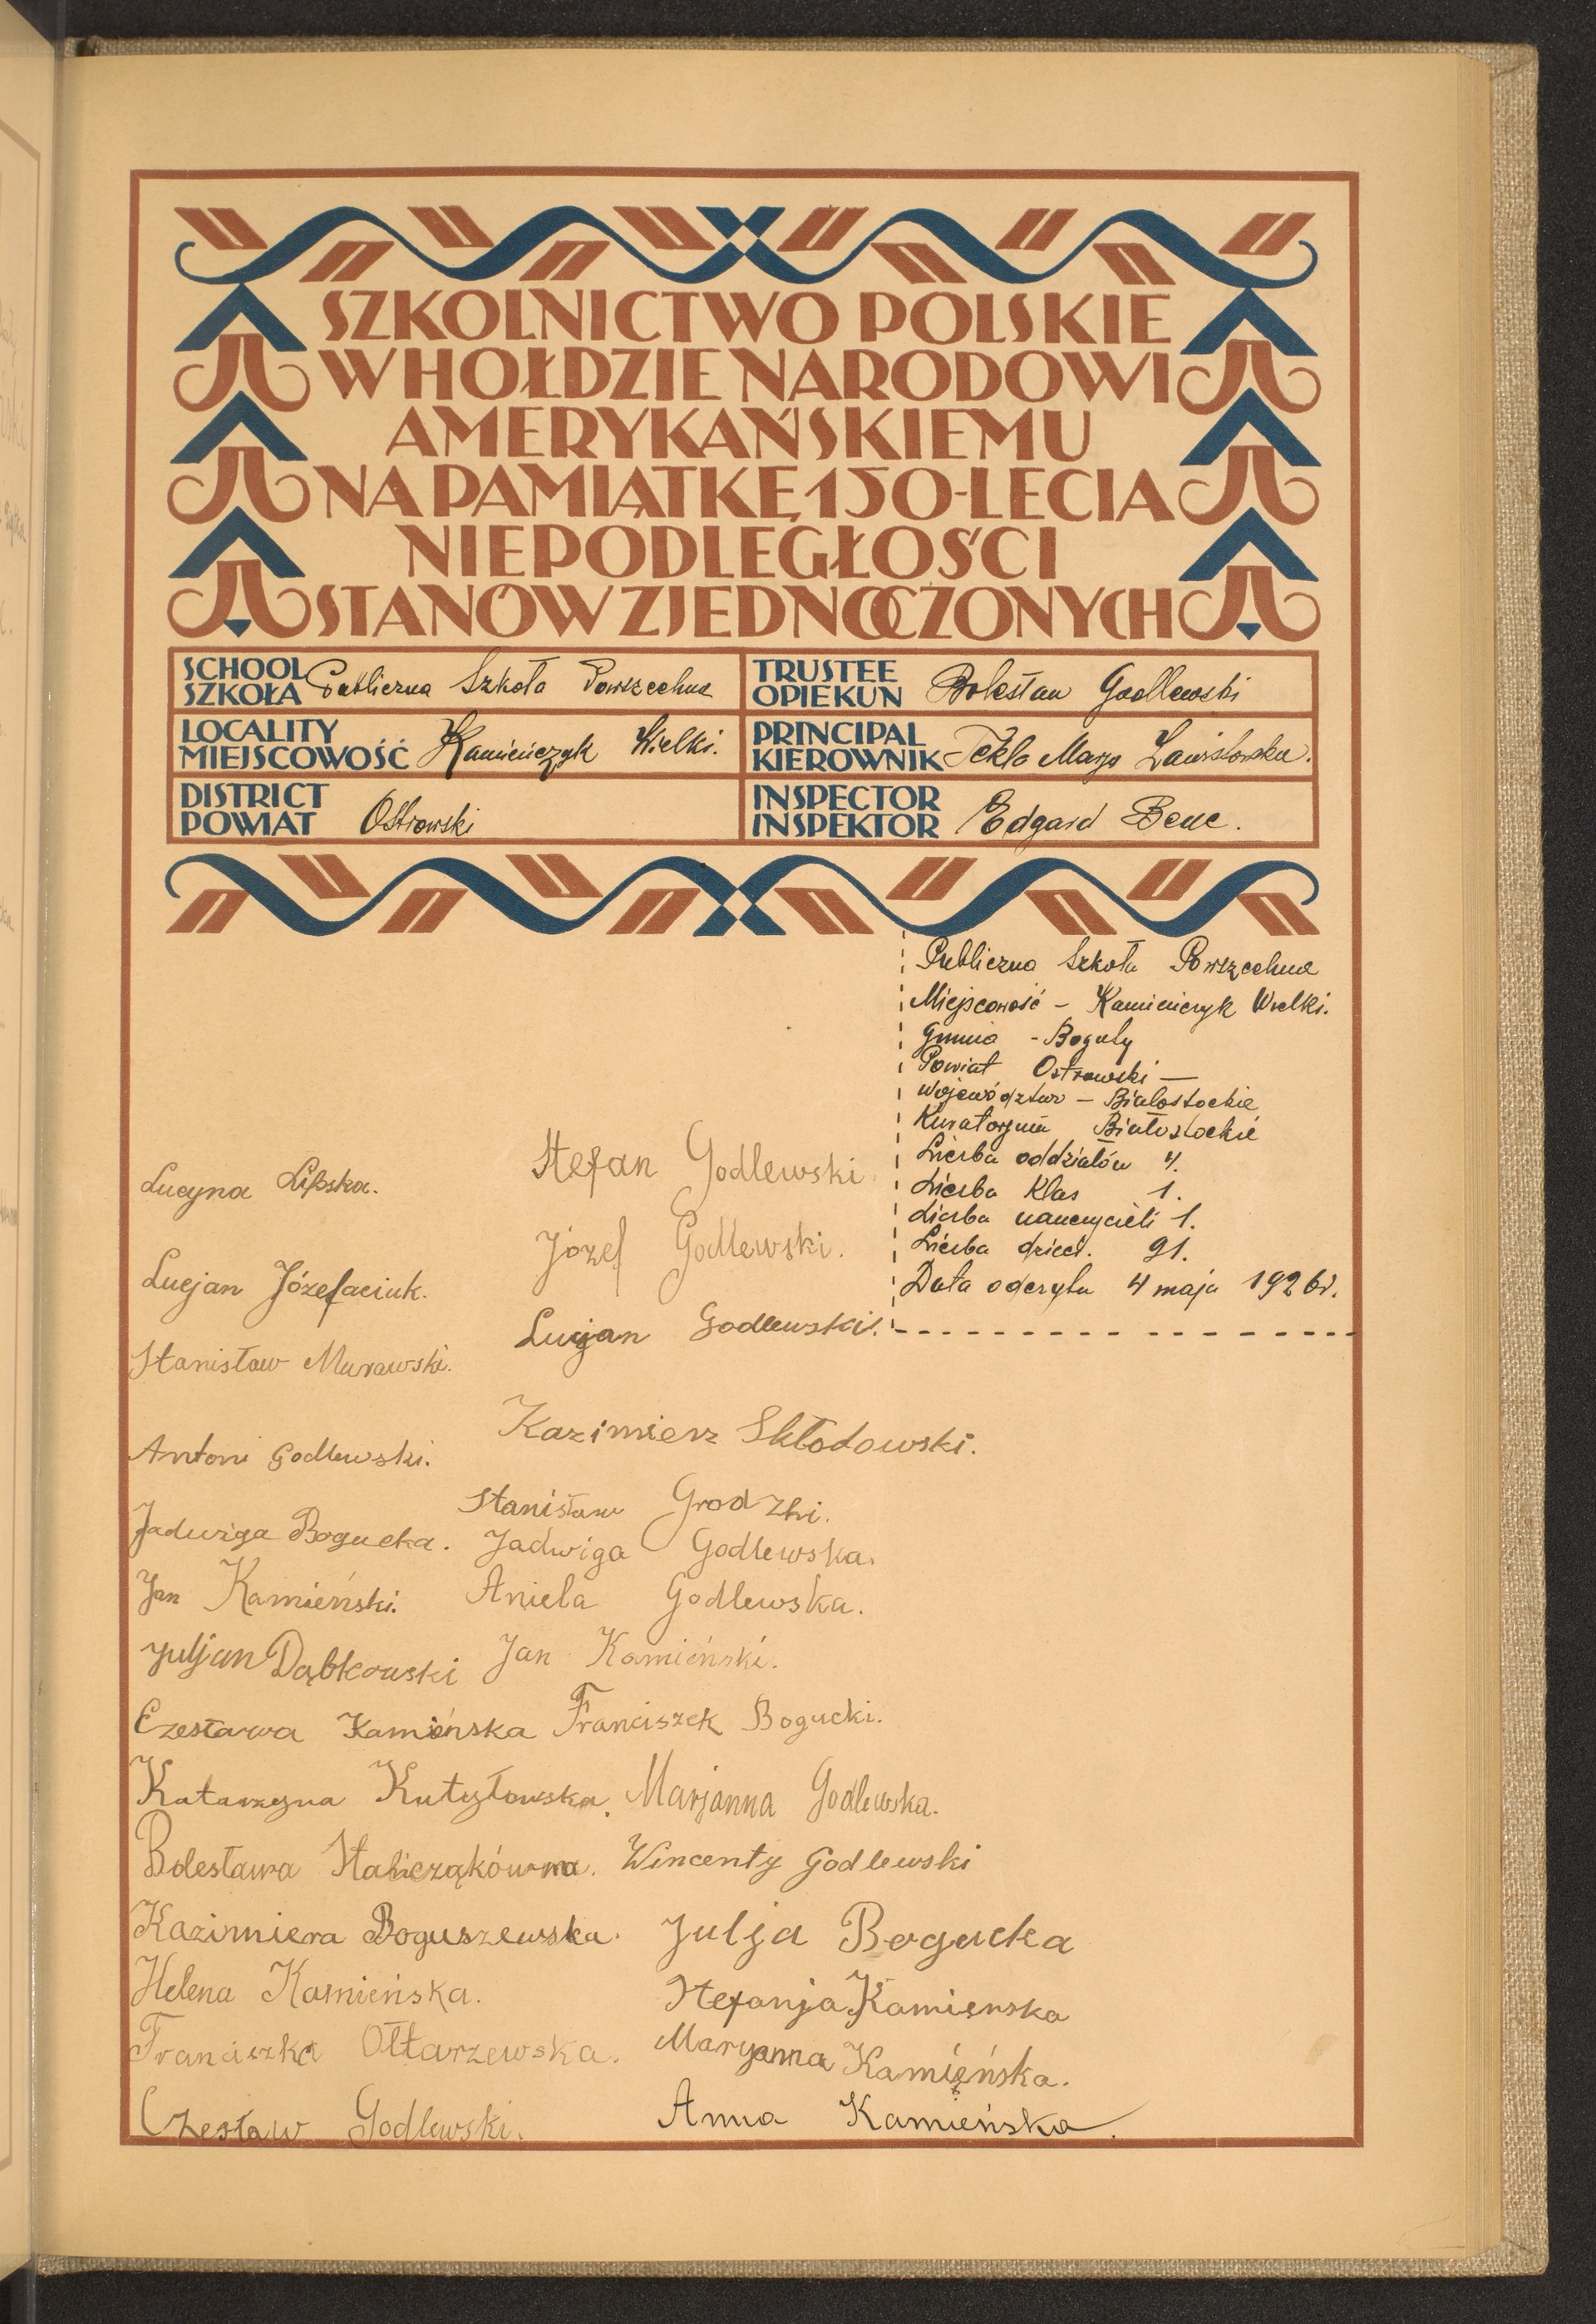 SZKOLNICTWO POLSKIE
W HOŁDZIE NARODOWI
AMERYKAŃSKIEMU
NA PAMIĄTKĘ 150-LECIA
NIEPODLEGŁOŚCI
STANÓW ZJEDNOCZONYCH
SCHOOL
SZKOŁA Publiczna Szkoła Powszechna
TRUSTEE
OPIEKUN Bolesław Godlewski
LOCALITY
MIEJSCOWOŚĆ Kamieńczyk Wielki.
PRINCIPAL
KIEROWNIK Tekla Marja Zawistowska.
DISTRICT
POWIAT Ostrowski
INSPECTOR
INSPEKTOR Edgard Bene.
Publiczna Szkoła Powszechna
Miejscowość - Kamieńczyk Wielki.
Gmina - Boguty
Powiat Ostrowski —
Województwo - Białostockie
Kuratorjum Białostockie
Liczba oddziałów 4.
Liczba Klas 1.
Liczba nauczycieli 1.
Liczba dzieci. 91.
Data odczytu 4 maja 1926r.
Lucyna Lipska.
Lucjan Józefaciuk.
Stanisław Murawski.
Antoni Godlewski.
Jadwiga Bogucka.
Jan Kamieński.
Juljan Dąbkowski
Czesława Kamieńska
Katarzyna Kutyłowska.
Bolesława
Kazimiera Boguszewska.
Helena Kamieńska.
Franciszka Ołtarzewska.
Czesław Godlewski.
Stefan Godlewski
Józef Godlewski.
Lucjan Godlewski.
Kazimierz Skłodowski.
Stanisław Grodzki.
Jadwiga Godlewska.
Aniela Godlewska.
Jan Kamieński.
Franciszek Bogucki.
Marjanna Godlewska.
Wincenty Godlewski
Julja Bogucka
Stefanja Kamienska
Maryanna Kamięńska.
Anna Kamieńska.